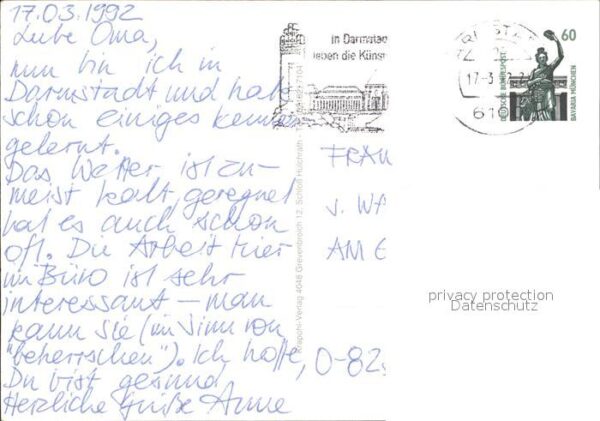 17.03.1992
Liebe Oma,
nun bin ich in
Darmstadt und habe
schon einiges kennen
gelernt.
Das Wetter ist zu-
meist kalt, geregnet
hat es auch schon
oft. Die Arbeit hier
im Büro ist sehr
interessant – man
kann sie (im Sinn von
"beherrschen"). Ich hoffe,
Du bist gesund
Herzliche Grüße Anne
in Darmstad
leben die Künst
17-3
61
60
DEUTSCHE BUNDESPOST
BAVARIA MÜNCHEN
Krapohl-Verlag 4048 Grevenbroich 12, Schloß Hülchrath
FRAU
AM
D-82
privacy protection
Datenschutz